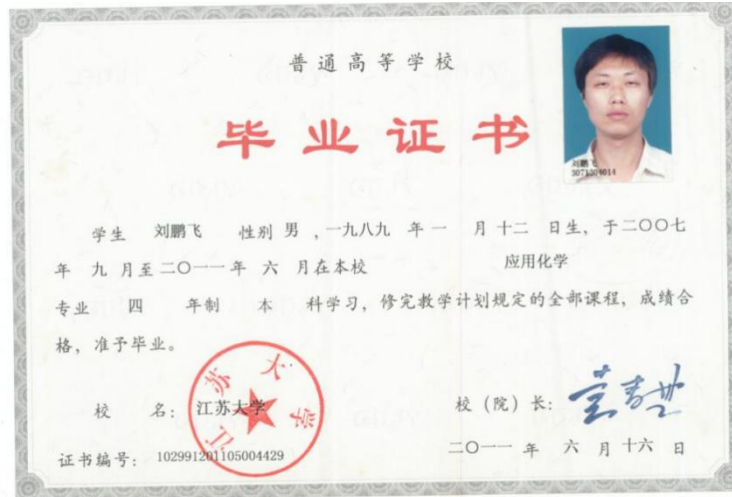 普通高等学校
毕业证书
刘鹏飞
3071304014
学生 刘鹏飞 性别 男 ,一九八九 年 一 月 十二 日生，于二〇〇七
年 九 月至 二〇一一 年 六 月在本校 应用化学
专业 四 年制 本 科学习，修完教学计划规定的全部课程，成绩合
格，准予毕业。
江苏大学
校 名： 江苏大学
校（院）长：
证书编号： 102991201105004429
二〇一一 年 六 月 十六 日